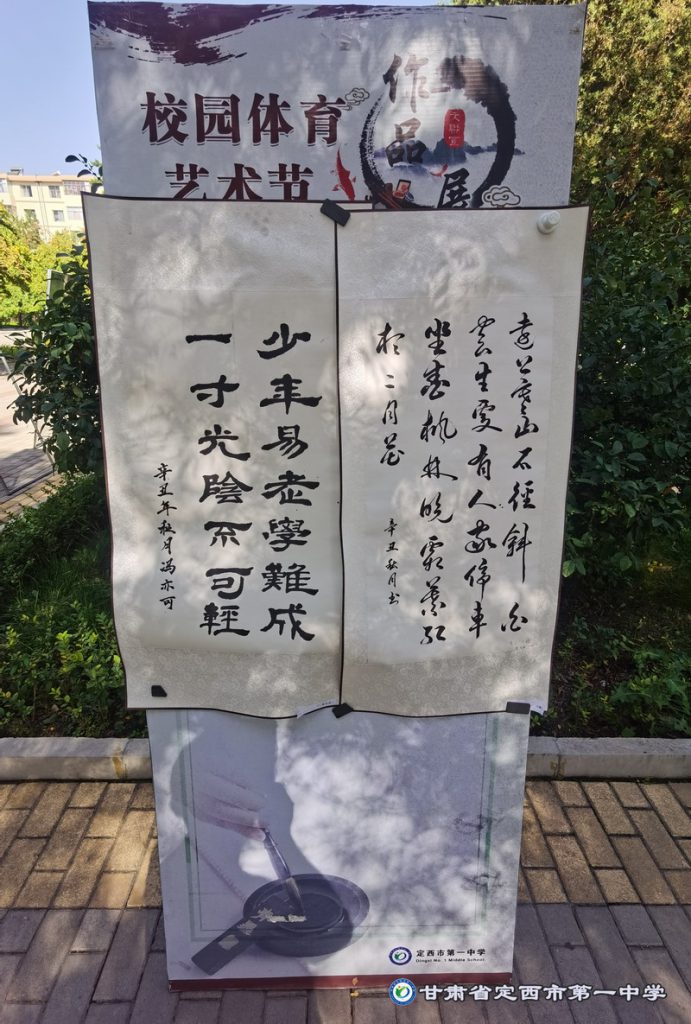 校园体育
艺术节
作品展
遠上寒山石徑斜白
雲生處有人家停車
坐愛楓林晚霜葉紅
於二月花
辛丑秋月书
少年易老學難成
一寸光陰不可輕
辛丑年秋月冯亦可
定西市第一中学
Dingxi No.1 Middle School
甘肃省定西市第一中学